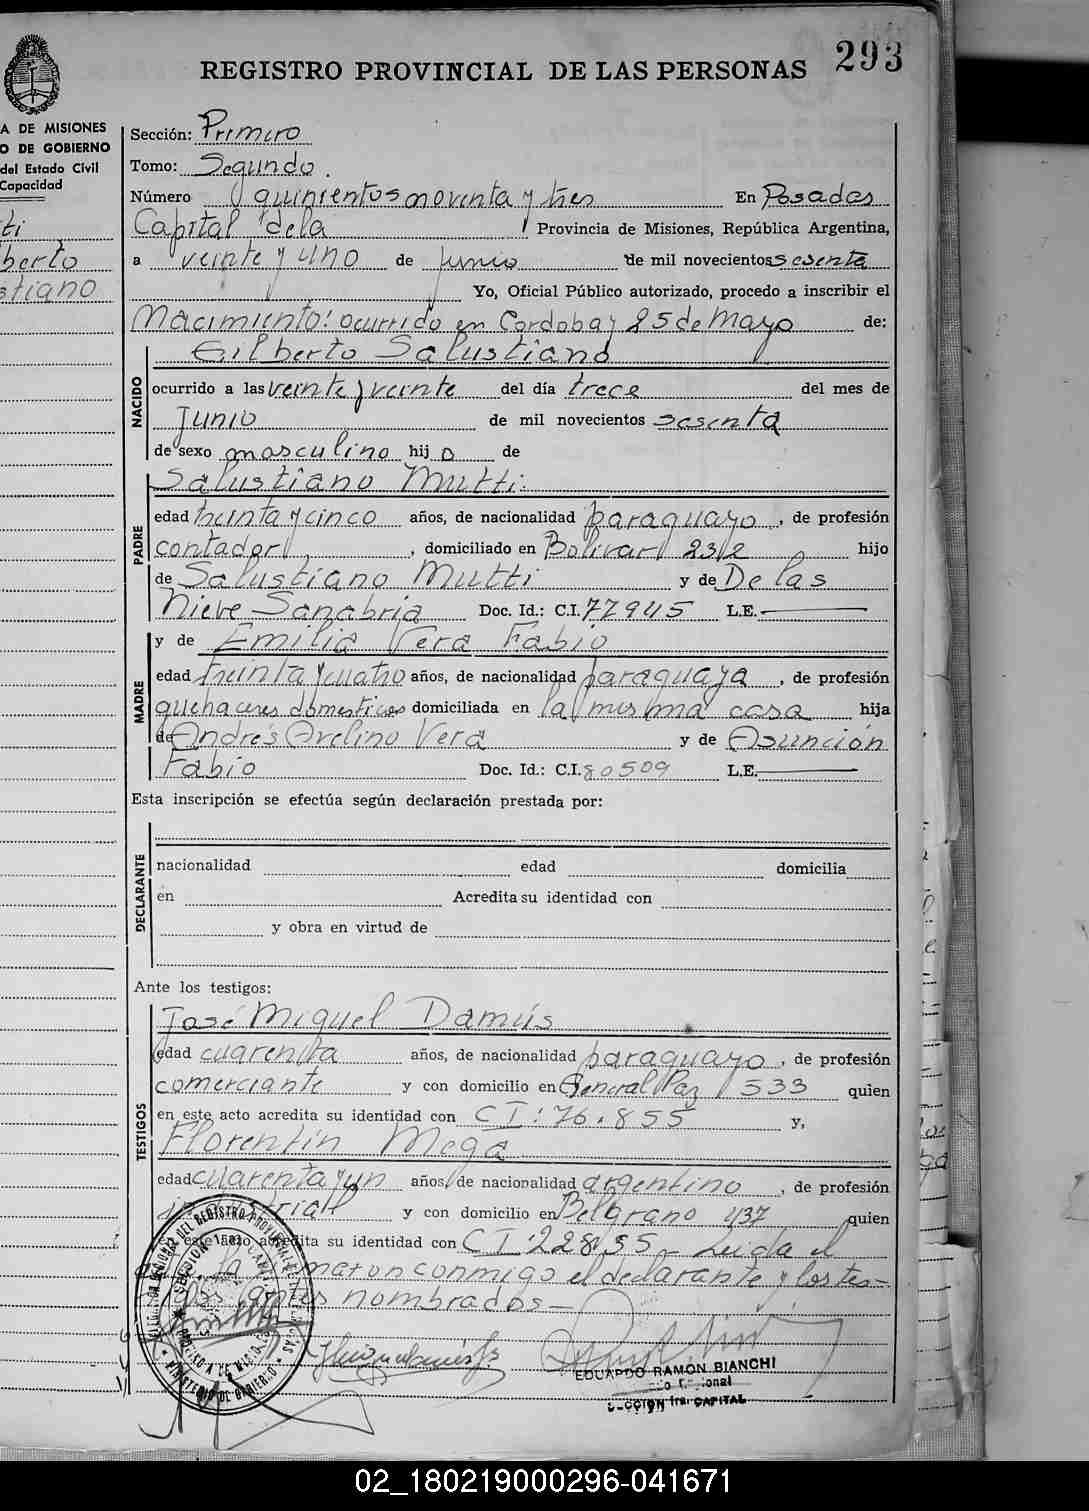 293
REGISTRO PROVINCIAL DE LAS PERSONAS
A DE MISIONES
O DE GOBIERNO
del Estado Civil
Capacidad
tti
berto
stiano
Sección: Primero
Tomo: Segundo.
Número quinientos noventa y tres En Posadas
Capital de la Provincia de Misiones, República Argentina,
a veinte y uno de junio de mil novecientos sesenta
Yo, Oficial Público autorizado, procedo a inscribir el
Nacimiento: ocurrido en Cordoba y 25 de Mayo de:
Gilberto Salustiano
NACIDO
ocurrido a las veinte y veinte del día trece del mes de
Junio de mil novecientos sesenta
de sexo masculino hijo de
PADRE
Salustiano Mutti.
edad treinta y cinco años, de nacionalidad paraguayo, de profesión
contador, domiciliado en Bolivar 2312 hijo
de Salustiano Mutti y de De las
Nieve Sanabria Doc. Id.: C.I. 77945 L.E.
MADRE
y de Emilia Vera Fabio
edad treinta y cuatro años, de nacionalidad paraguaya, de profesión
quehaceres domesticos domiciliada en la misma casa hija
de Andrés Avelino Vera y de Asunción
Fabio Doc. Id.: C.I. 80509 L.E.
Esta inscripción se efectúa según declaración prestada por:
DECLARANTE
nacionalidad edad domicilia
en Acredita su identidad con
y obra en virtud de
Ante los testigos:
TESTIGOS
José Miguel Damús
edad cuarenta años, de nacionalidad paraguayo, de profesión
comerciante y con domicilio en General Paz 533 quien
en este acto acredita su identidad con CI: 76.855 y,
Florentin Mega
edad cuarenta y un años, de nacionalidad argentino, de profesión
y con domicilio en Belgrano 437 quien
acredita su identidad con CI: 22835 - Leida el
conmigo el declarante y los tes-
nombrados -
EDUARDO RAMON BIANCHI
CAPITAL
02_180219000296-041671